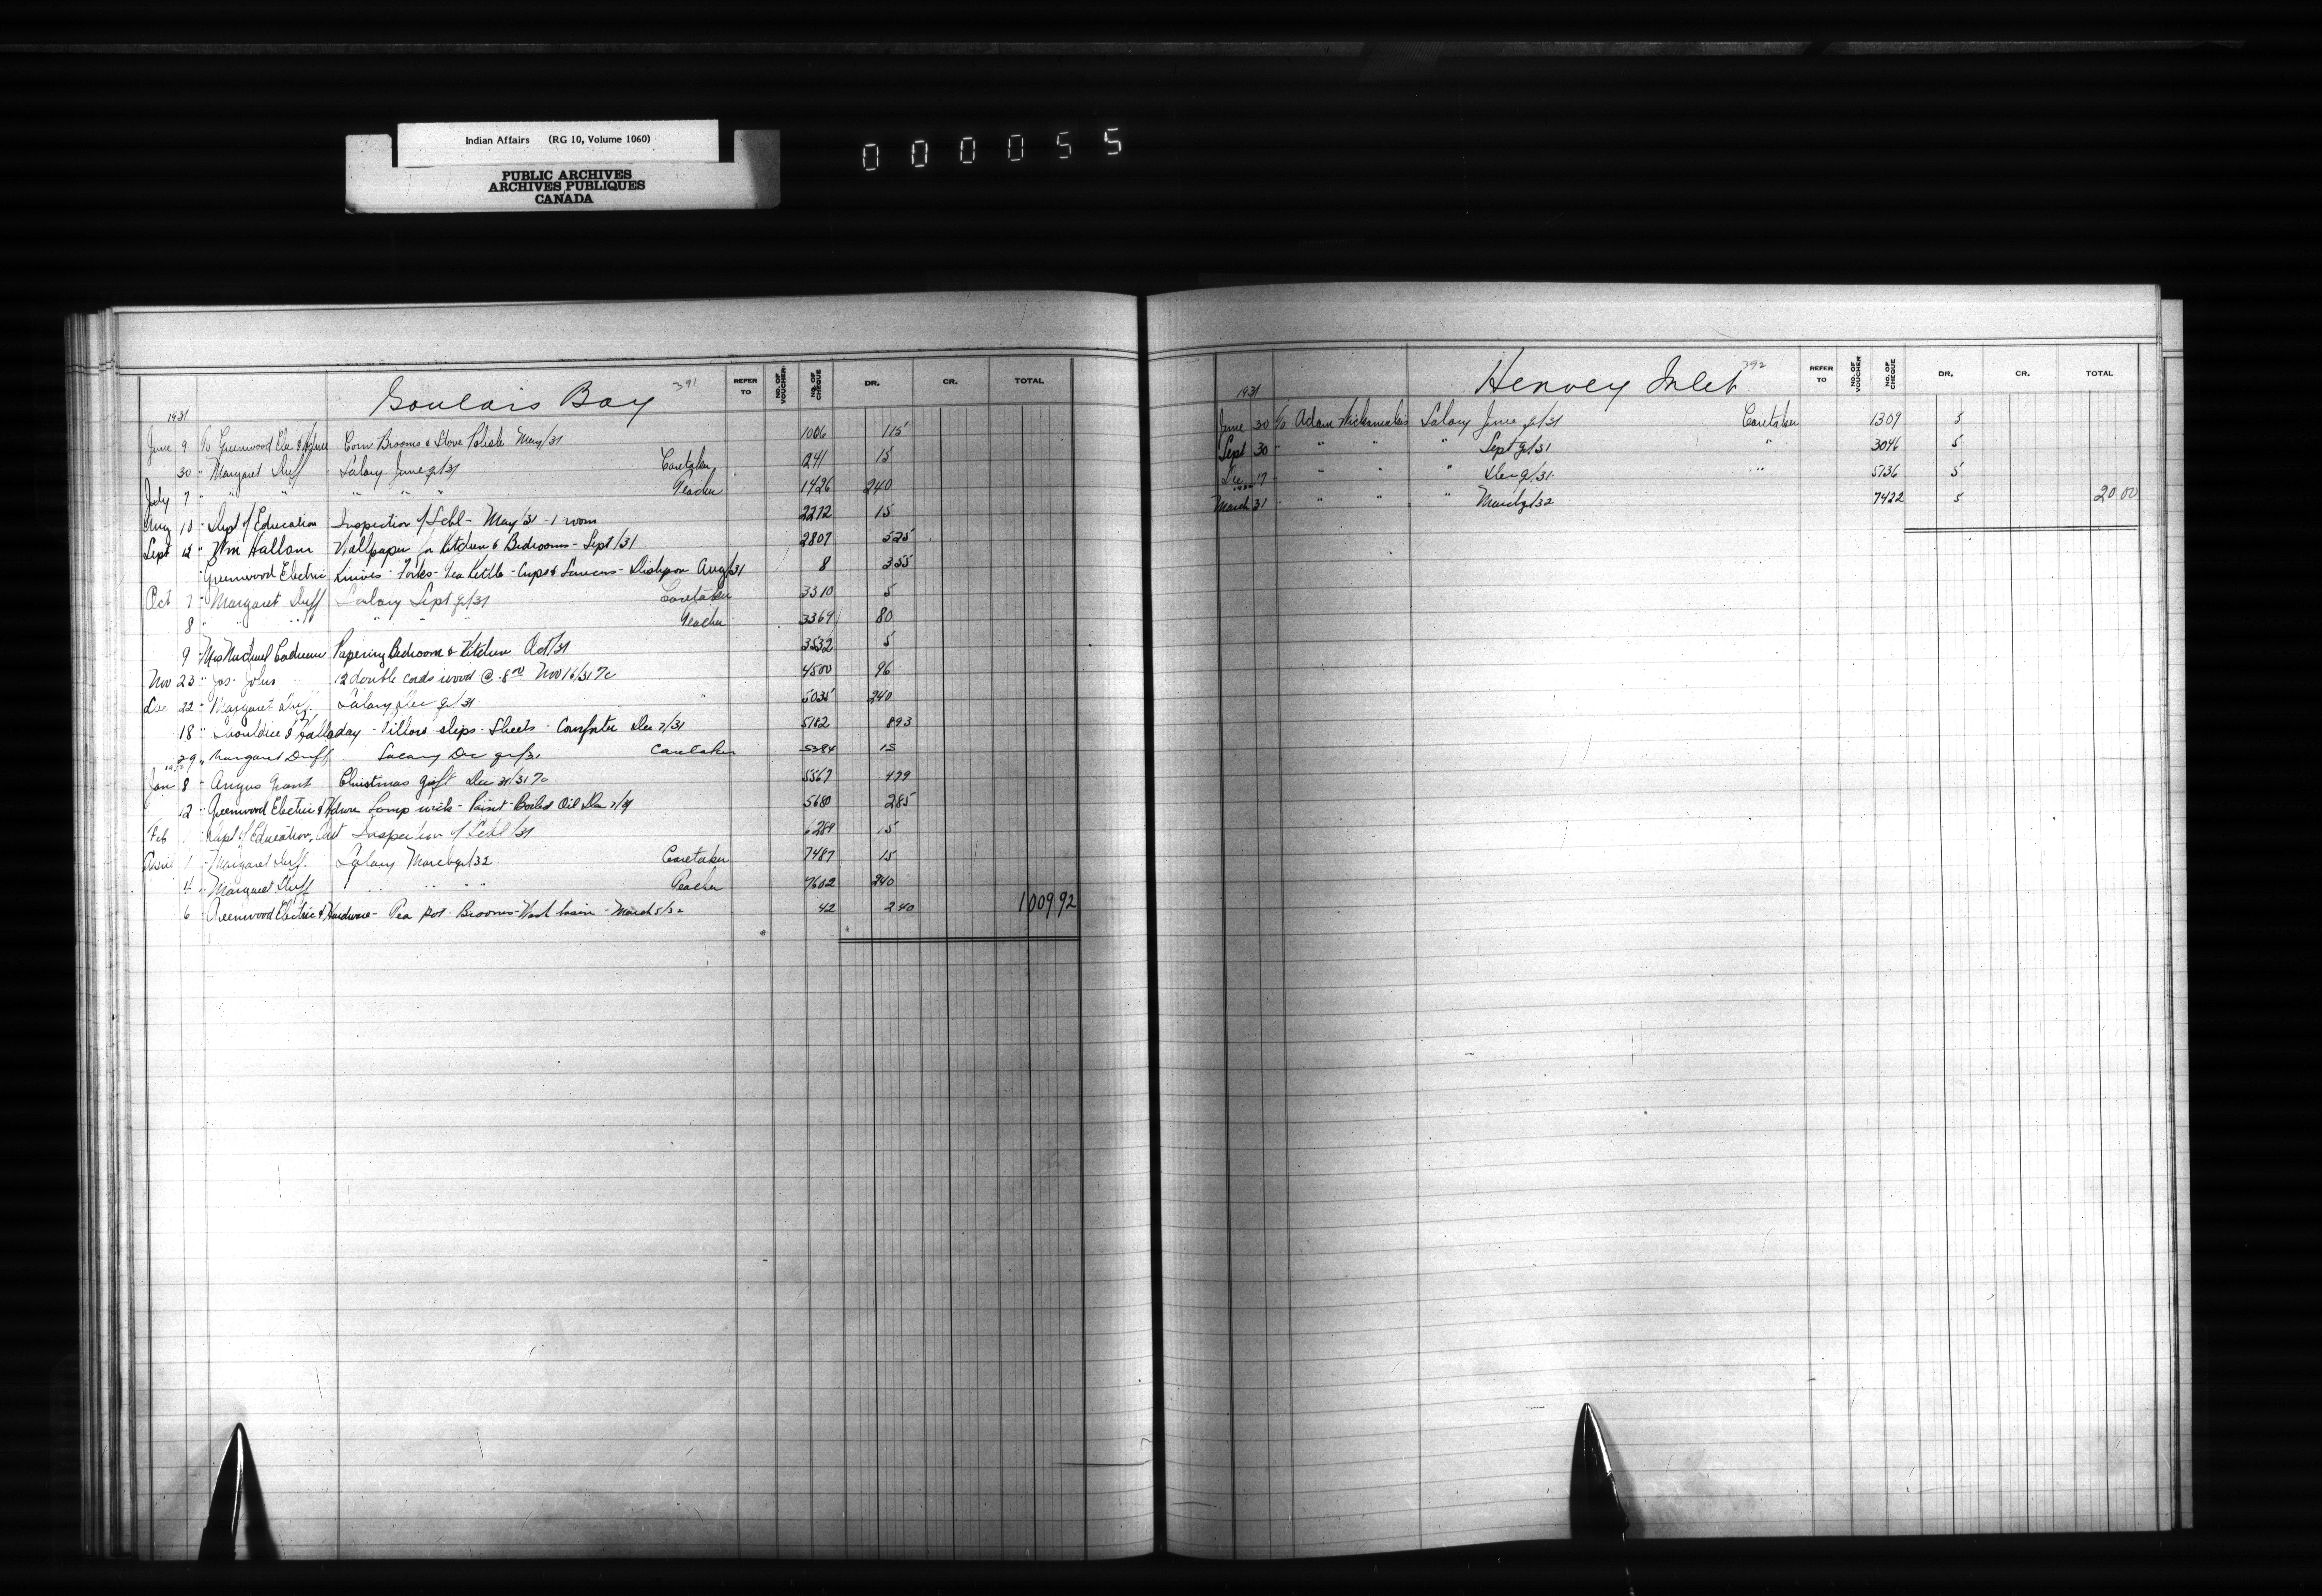 Indian Affairs (RG 10, Volume 1060)
PUBLIC ARCHIVES
ARCHIVES PUBLIQUES
CANADA
000055
Goulais Bay 391
REFER TO NO. OF VOUCHER NO. OF CHEQUE DR. CR. TOTAL
1931
June 9 Greenwood Elec & Hdwre Corn Brooms & Stove Polish May/31 1006 1 15
30 " Margaret Duff Salary June qr/31 Caretaker 241 15
July 7 " " " " " " Teacher 1426 240
Aug 10 " Dept of Education Inspection of Schl - May/31 - 1 room 2272 15
Sept 12 " Wm Hallam Wallpaper for Kitchen & Bedrooms - Sept/31 2807 5 25
" Greenwood Electric Knives - Forks - Tea Kettle - Cups & Saucers - Dishpan Aug/31 8 3 55
Oct 7 " Margaret Duff Salary Sept qr/31 Caretaker 3310 5
8 " " " " " " Teacher 3369 80
9 " Mrs Michael Papering Bedroom & Kitchen Oct/31 3532 5
Nov 23 " Jos. John 12 double cords wood @ 8.00 Nov 16/31 4500 96
Dec 22 " Margaret Duff Salary Dec qr/31 " 5035 240
18 " Shouldice & Halladay - Pillow slips - Sheets - Comforter Dec 7/31 5182 8 93
29 " Margaret Duff Salary Dec qr/31 Caretaker 5384 15
1932
Jan 8 " Angus Grant Christmas gift Dec 31/31 5567 4 99
12 " Greenwood Electric & Hdwre Lamp wick - Paint - Boiled Oil Dec 7/31 5680 2 85
Feb 1 " Dept of Education, Ont Inspection of Schl/31 6289 15
April 1 " Margaret Duff Salary March qr/32 Caretaker 7487 15
4 " Margaret Duff " " " Teacher 7602 240
6 " Greenwood Electric & Hardware - Tea pot - Brooms - Wash basin - March 5/32 42 2 40 1009 92
Henvey Inlet 392
REFER TO NO. OF VOUCHER NO. OF CHEQUE DR. CR. TOTAL
1931
June 30 Adam Salary June qr/31 Caretaker 1309 5
Sept 30 " " " " Sept qr/31 " 3046 5
Dec 17 " " " Dec qr/31 " 5136 5
1932
March 31 " " " " March qr/32 7422 5 20 00